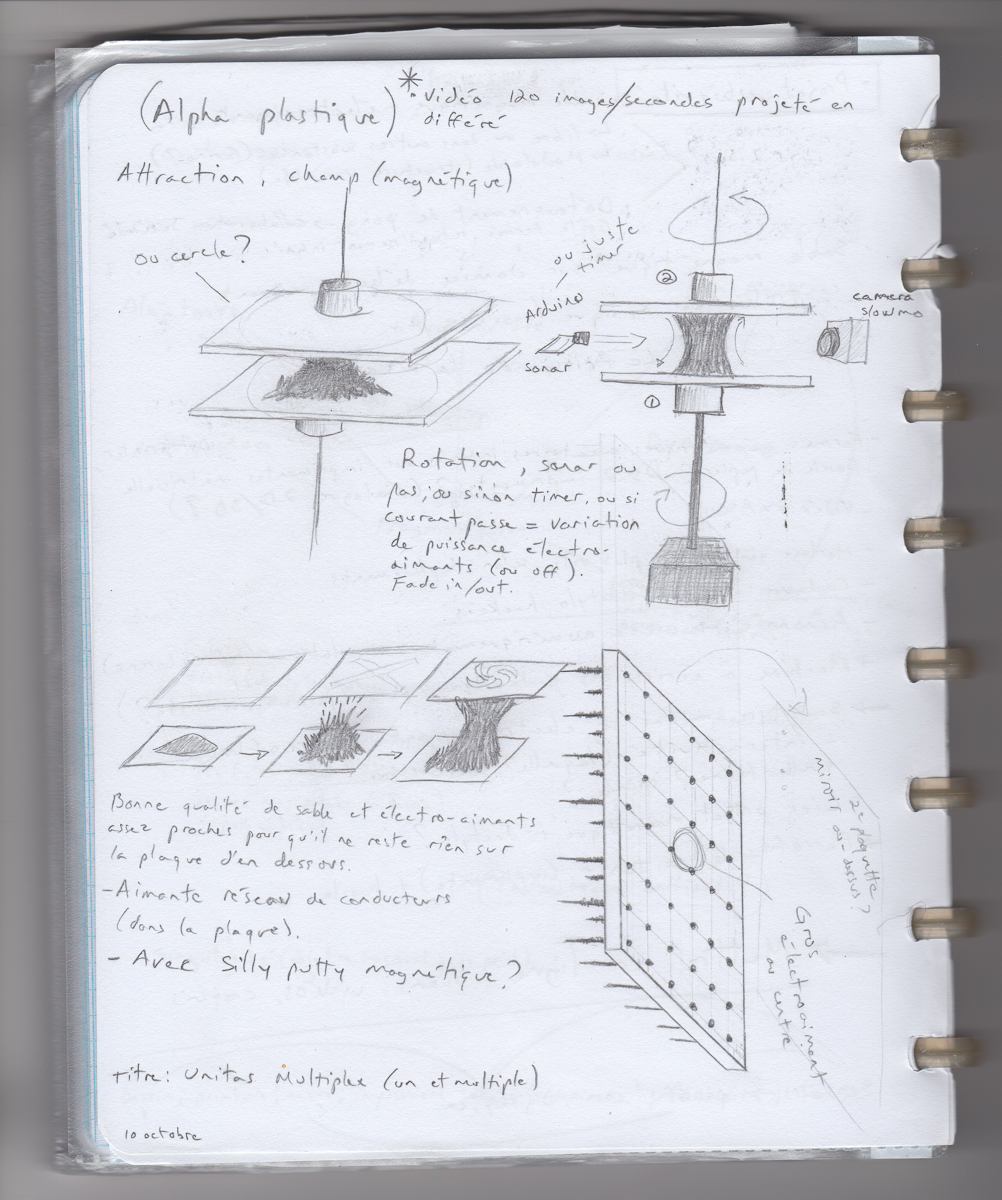 (Alpha plastique)
* Vidéo 120 images/secondes projeté en
différé
Attraction, champ (magnétique)
ou cercle?
ou juste
timer
Arduino
sonar
②
①
camera
slowmo
Rotation, sonar ou
pas, ou sinon timer, ou si
courant passe = variation
de puissance électro-
aimants (ou off).
Fade in/out.
Bonne qualité de sable et électro-aimants
assez proches pour qu'il ne reste rien sur
la plaque d'en dessous.
- Aimante réseau de conducteurs
(dans la plaque).
- Avec Silly putty magnétique?
miroir au-dessus?
2e plaquette
Gros
électroaimant
au centre
Titre: Unitas Multiplex (un et multiple)
10 octobre